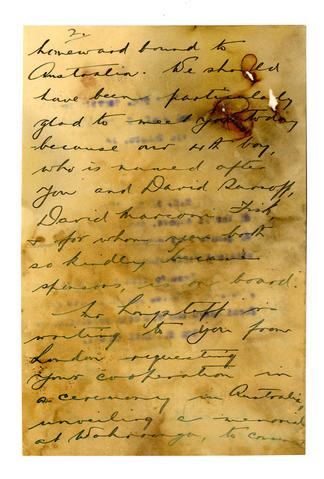 2.
homeward bound to
Australia. We should
have been particularly
glad to meet you today
because our 4th boy,
who is named after
you and David Sarnoff,
David Marconi Fisk
& for whom you both
so kindly became
sponsors, is on board.
Mr Longstaff is
writing to you from
London requesting
your cooperation in
a ceremony in Australia,
unveiling a memorial
at Wahroonga, to comm